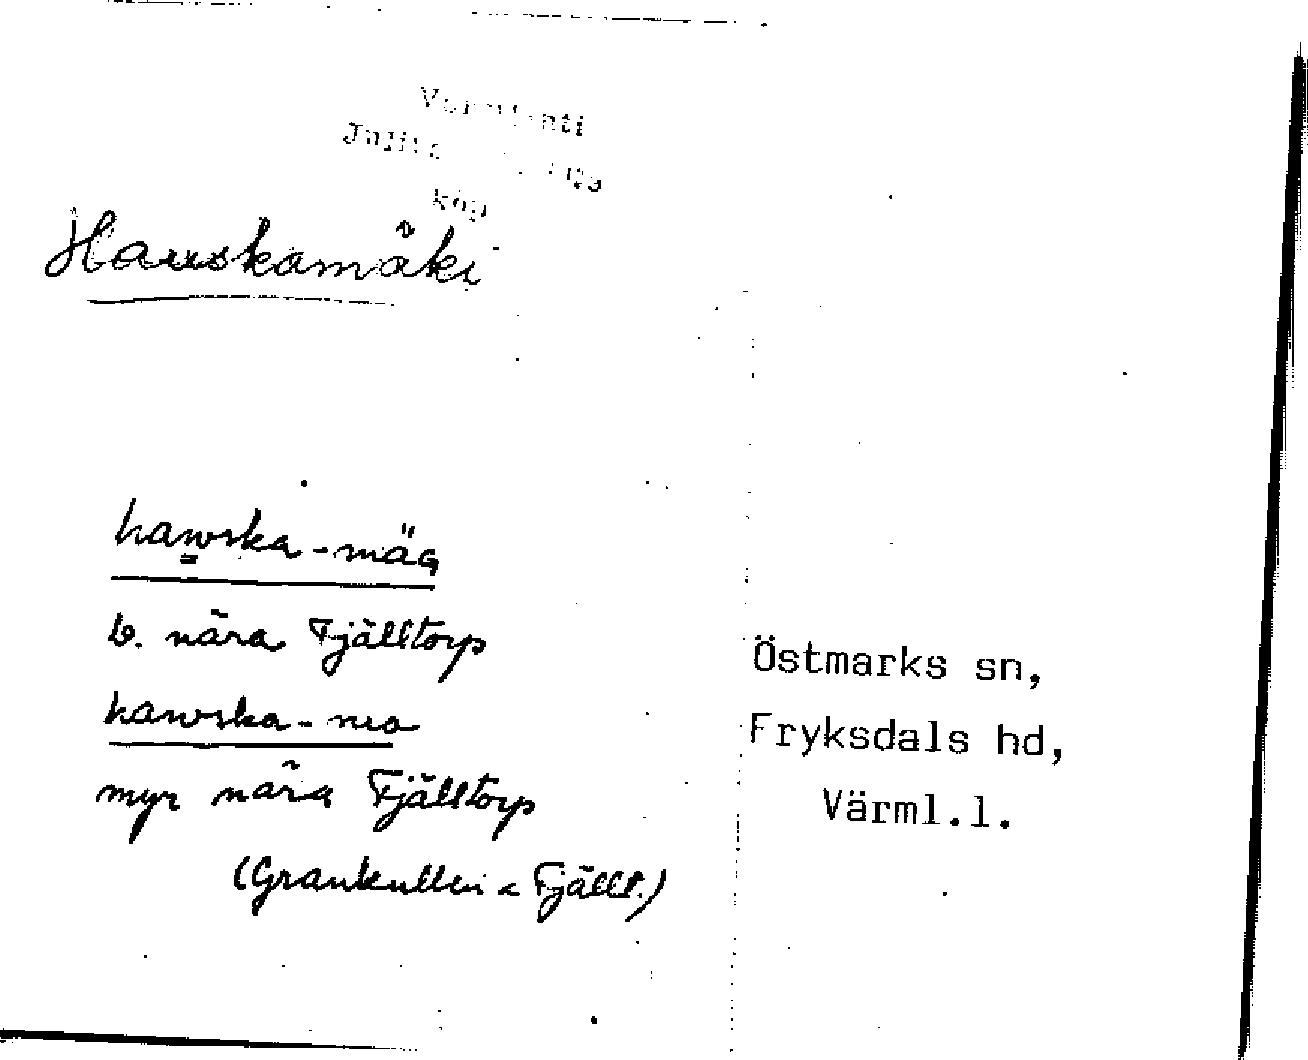 Hauskamäki
hawska-mäg
b. nära Fjälltorp
hawska-mo
myr nära Fjälltorp
(Grankullen < Fjällt.)
Östmarks sn,
Fryksdals hd,
Värml.l.